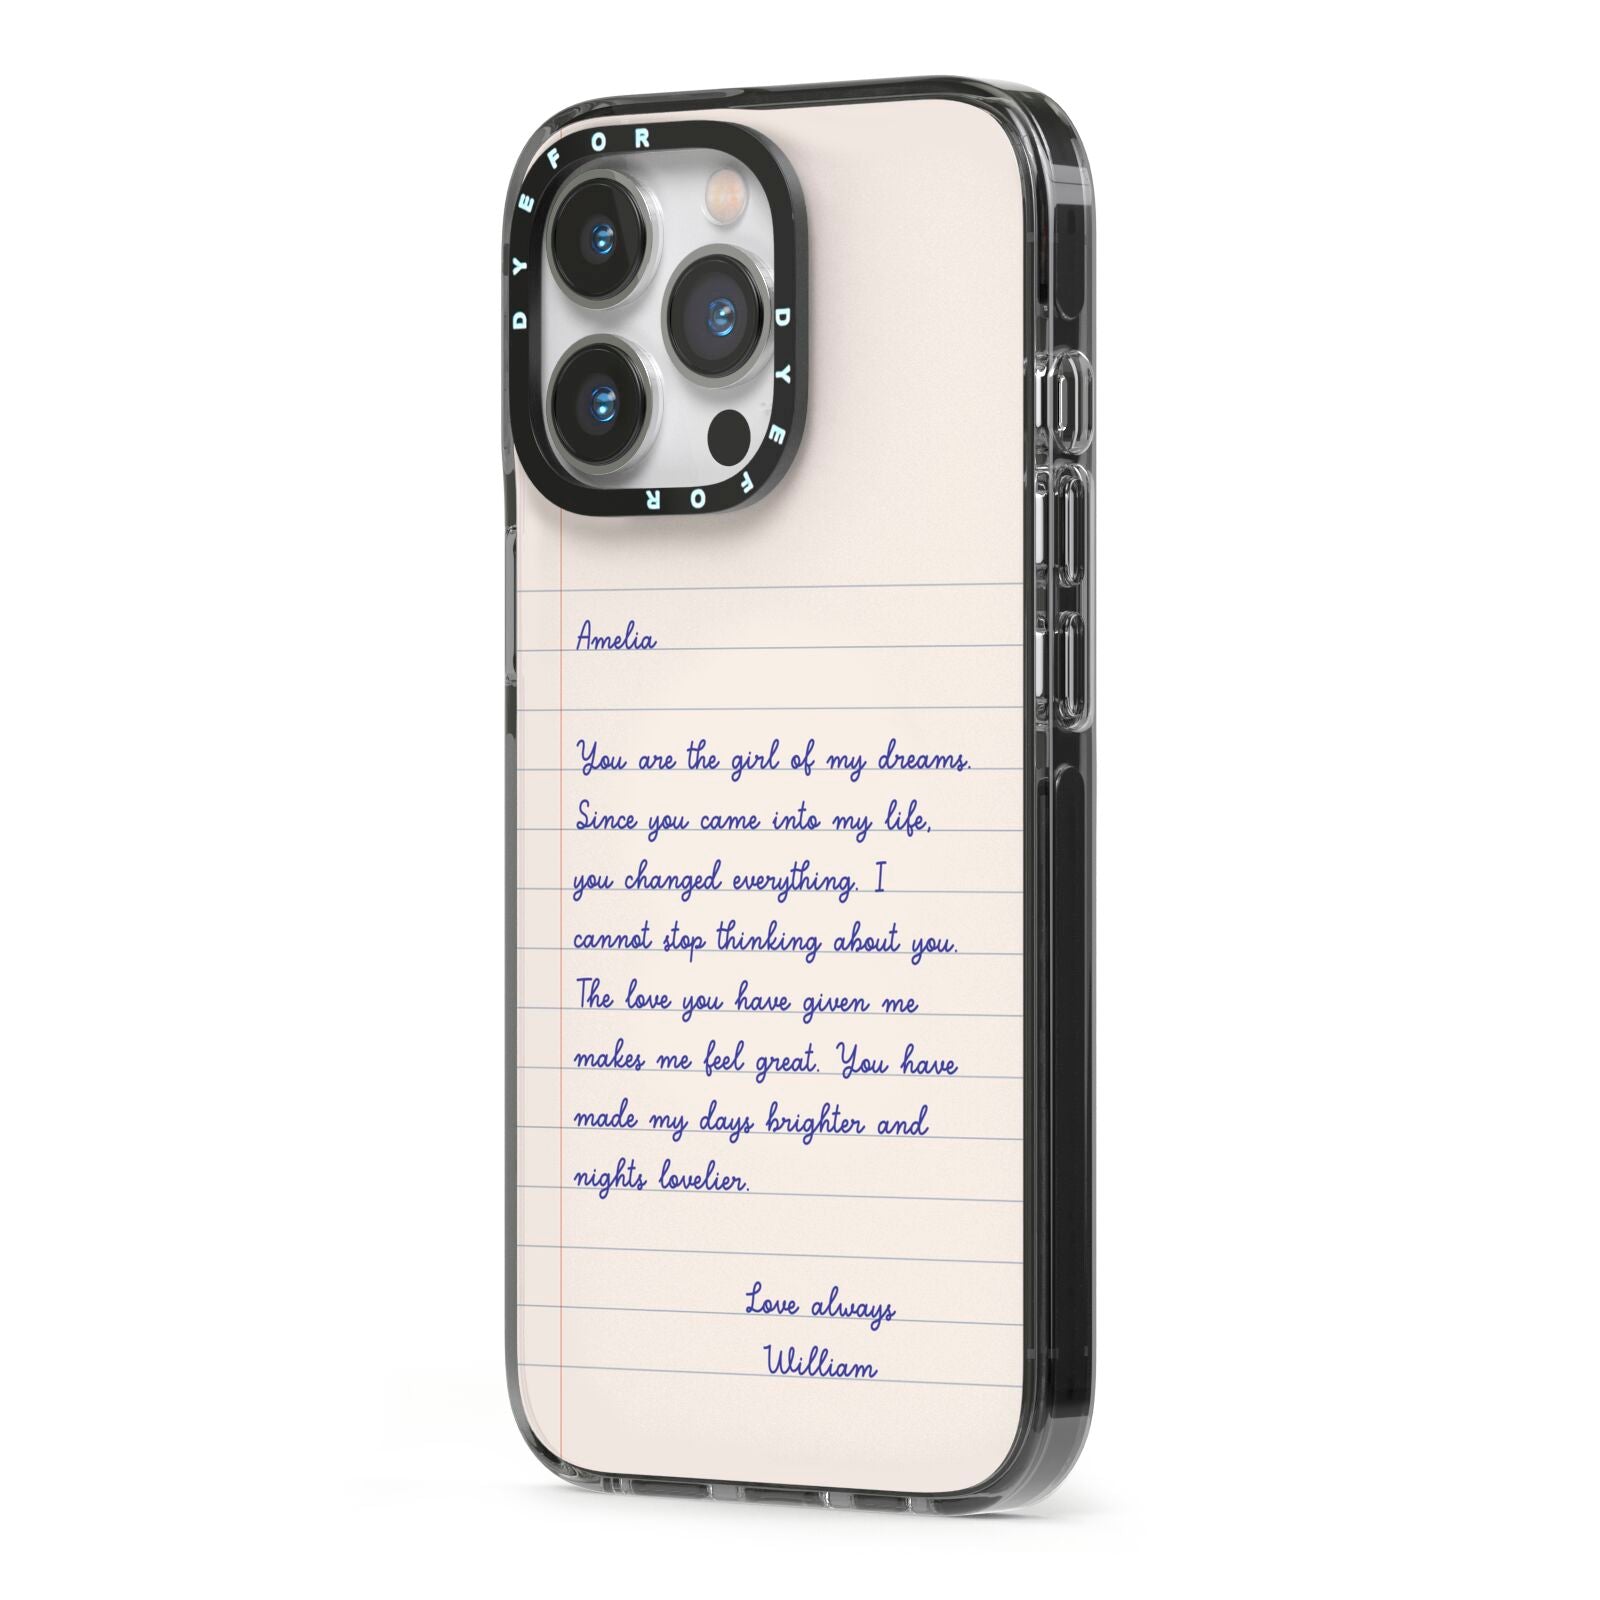 DYE FOR
DYE FOR
Amelia
You are the girl of my dreams.
Since you came into my life,
you changed everything. I
cannot stop thinking about you.
The love you have given me
makes me feel great. You have
made my days brighter and
nights lovelier.
Love always
William